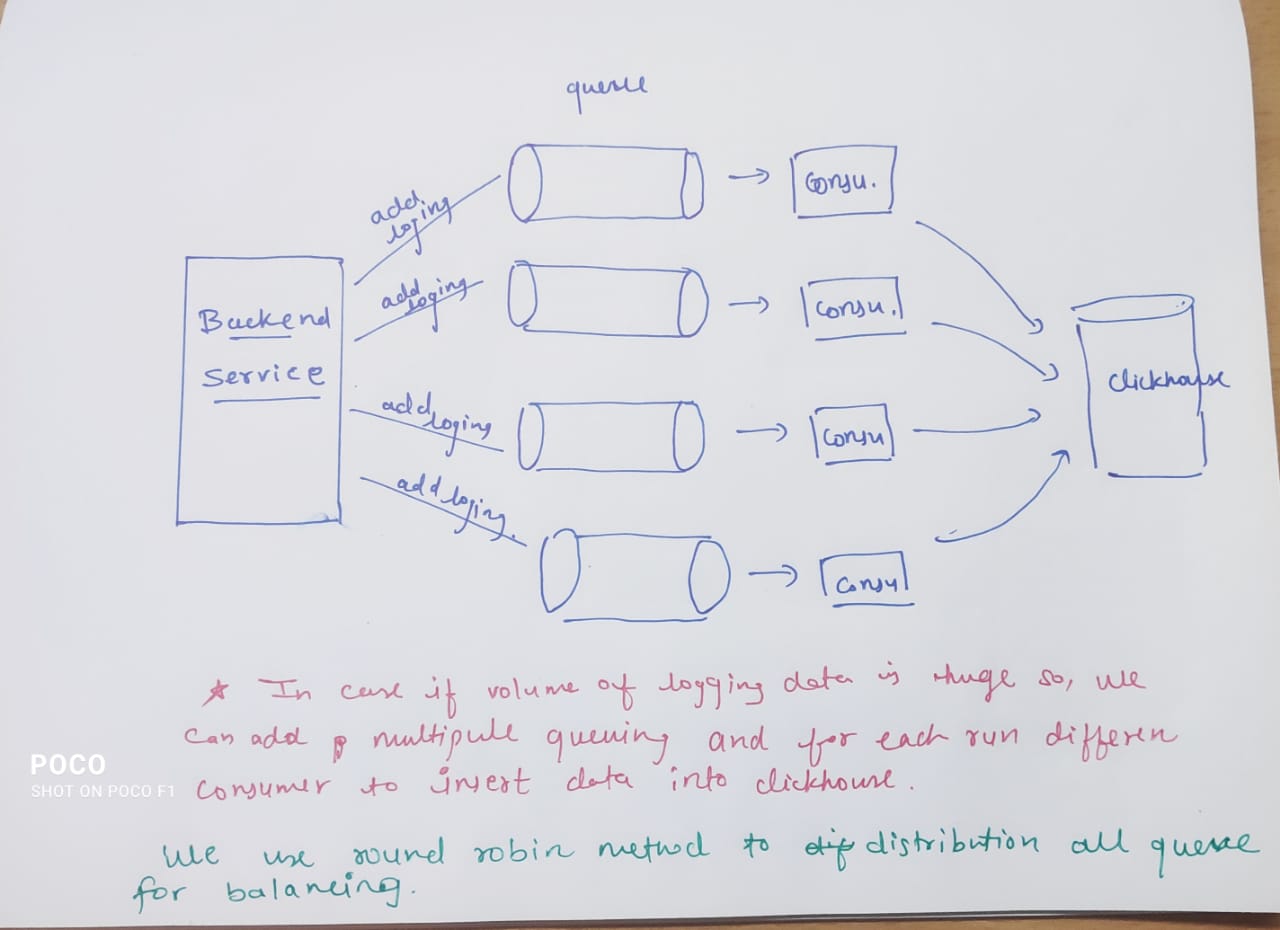 queue
add
loging
Consu.
add
loging
Consu.
Backend
Service
clickhouse
add
loging
Consu
add loging.
Consu
★ In case if volume of logging data is huge so, we
can add multipule queuing and for each run differen
consumer to insert data into clickhouse.
We use round robin method to dif distribution all queue
for balancing.
POCO
SHOT ON POCO F1